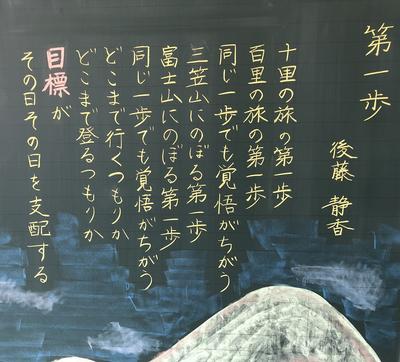 第一歩
後藤 静香
十里の旅の第一歩
百里の旅の第一歩
同じ一歩でも覚悟がちがう
三笠山にのぼる第一歩
富士山にのぼる第一歩
同じ一歩でも覚悟がちがう
どこまで行くつもりか
どこまで登るつもりか
目標が
その日その日を支配する